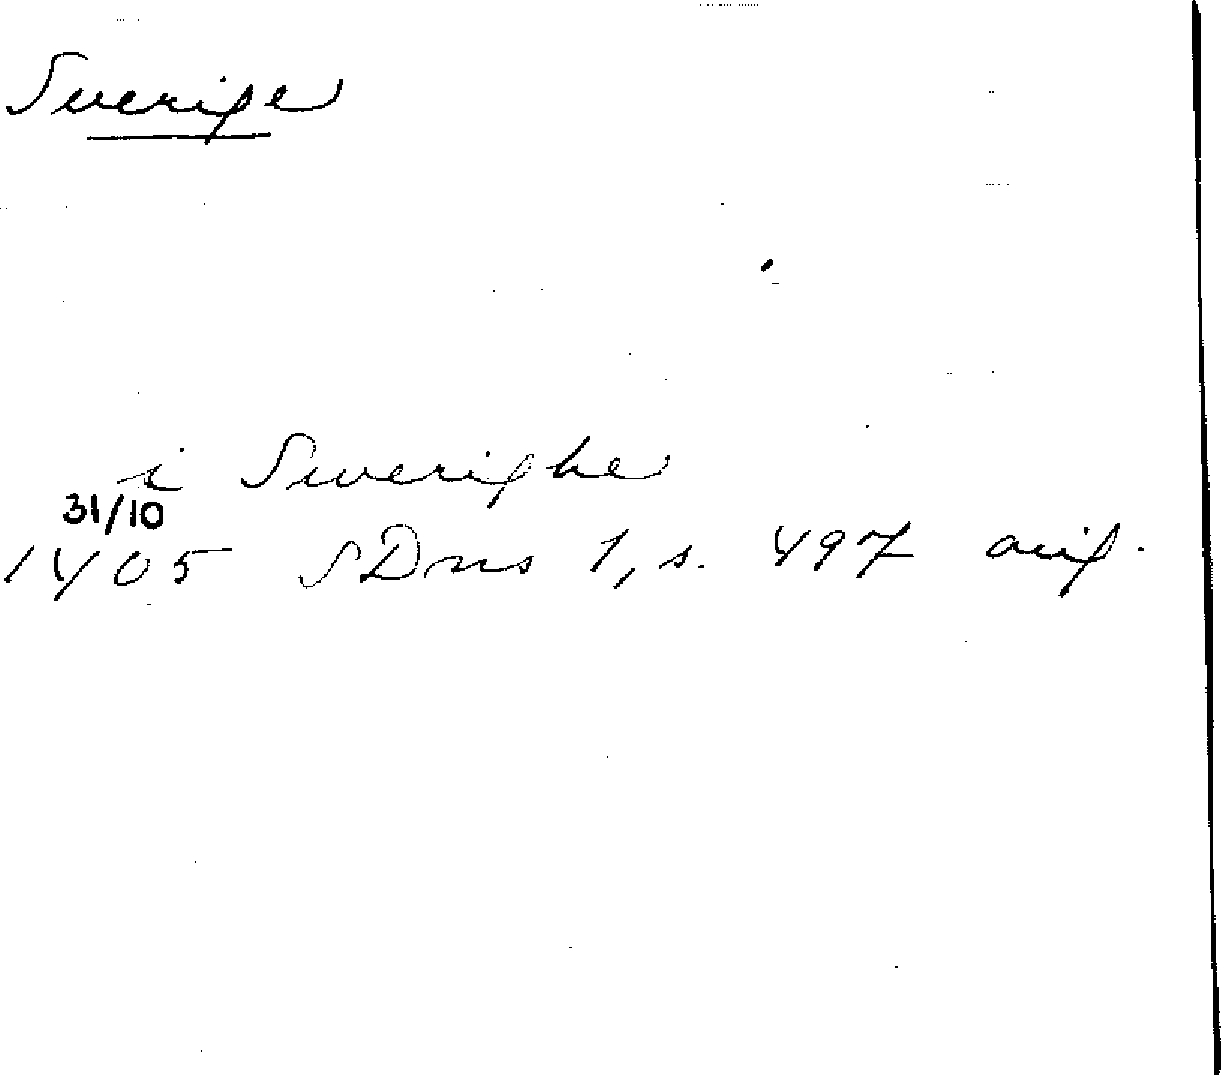 Sverige
i Swerighe
31/10
1405 SDns 1, s. 497 orig.